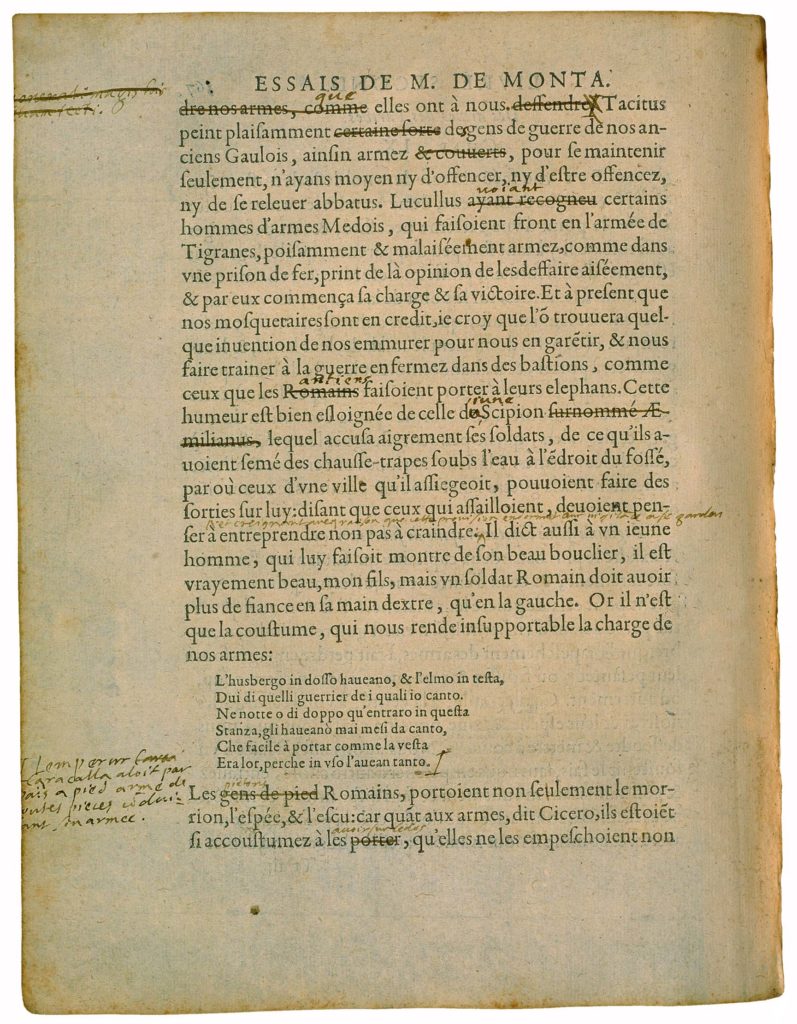 ESSAIS DE M. DE MONTA.
que
dre nos armes, comme elles ont à nous deffendre. Tacitus
peint plaiſamment certaine ſorte de gens de guerre de nos an-
ciens Gaulois, ainſin armez & couuerts, pour ſe maintenir
ſeulement, n'ayans moyen ny d'offencer, ny d'eſtre offencez,
voiant
ny de ſe releuer abbatus. Lucullus ayant recogneu certains
hommes d'armes Medois, qui faiſoient front en l'armée de
Tigranes, poiſamment & malaiſéement armez, comme dans
vne priſon de fer, print de là opinion de les deffaire aiſéement,
& par eux commença ſa charge & ſa victoire. Et à preſent que
nos moſquetaires ſont en credit, ie croy que l'õ trouuera quel-
que inuention de nous emmurer pour nous en garẽtir, & nous
faire trainer à la guerre enfermez dans des baſtions, comme
antiens
ceux que les Romains faiſoient porter à leurs elephans. Cette
iune
humeur eſt bien eſloignée de celle de Scipion ſurnommé Æ-
milianus, lequel accuſa aigrement ſes ſoldats, de ce qu'ils a-
uoient ſemé des chauſſe-trapes ſoubs l'eau à l'ẽdroit du foſſé,
par où ceux d'vne ville qu'il aſſiegeoit, pouuoient faire des
ſorties ſur luy: diſant que ceux qui aſſailloient, deuoient pen-
ſer à entreprendre non pas à craindre. Il dict auſſi à vn ieune
homme, qui luy faiſoit montre de ſon beau bouclier, il eſt
vrayement beau, mon fils, mais vn ſoldat Romain doit auoir
plus de fiance en ſa main dextre, qu'en la gauche. Or il n'eſt
que la couſtume, qui nous rende inſupportable la charge de
nos armes:
L'husbergo in doſſo haueano, & l'elmo in teſta,
Dui di quelli guerrier de i quali io canto.
Ne notte o di doppo qu'entraro in queſta
Stanza, gli haueanò mai meſi da canto,
Che facile à portar comme la veſta
Era lor, perche in vſo l'auean tanto.
L'emperur
Caracalla aloit par
païs a pied armé de
toutes pieces
armee.
Les gens de pied Romains, portoient non ſeulement le mor-
rion, l'eſpée, & l'eſcu: car quãt aux armes, dit Cicero, ils eſtoiẽt
ſi accouſtumez à les porter, qu'elles ne les empeſchoient non